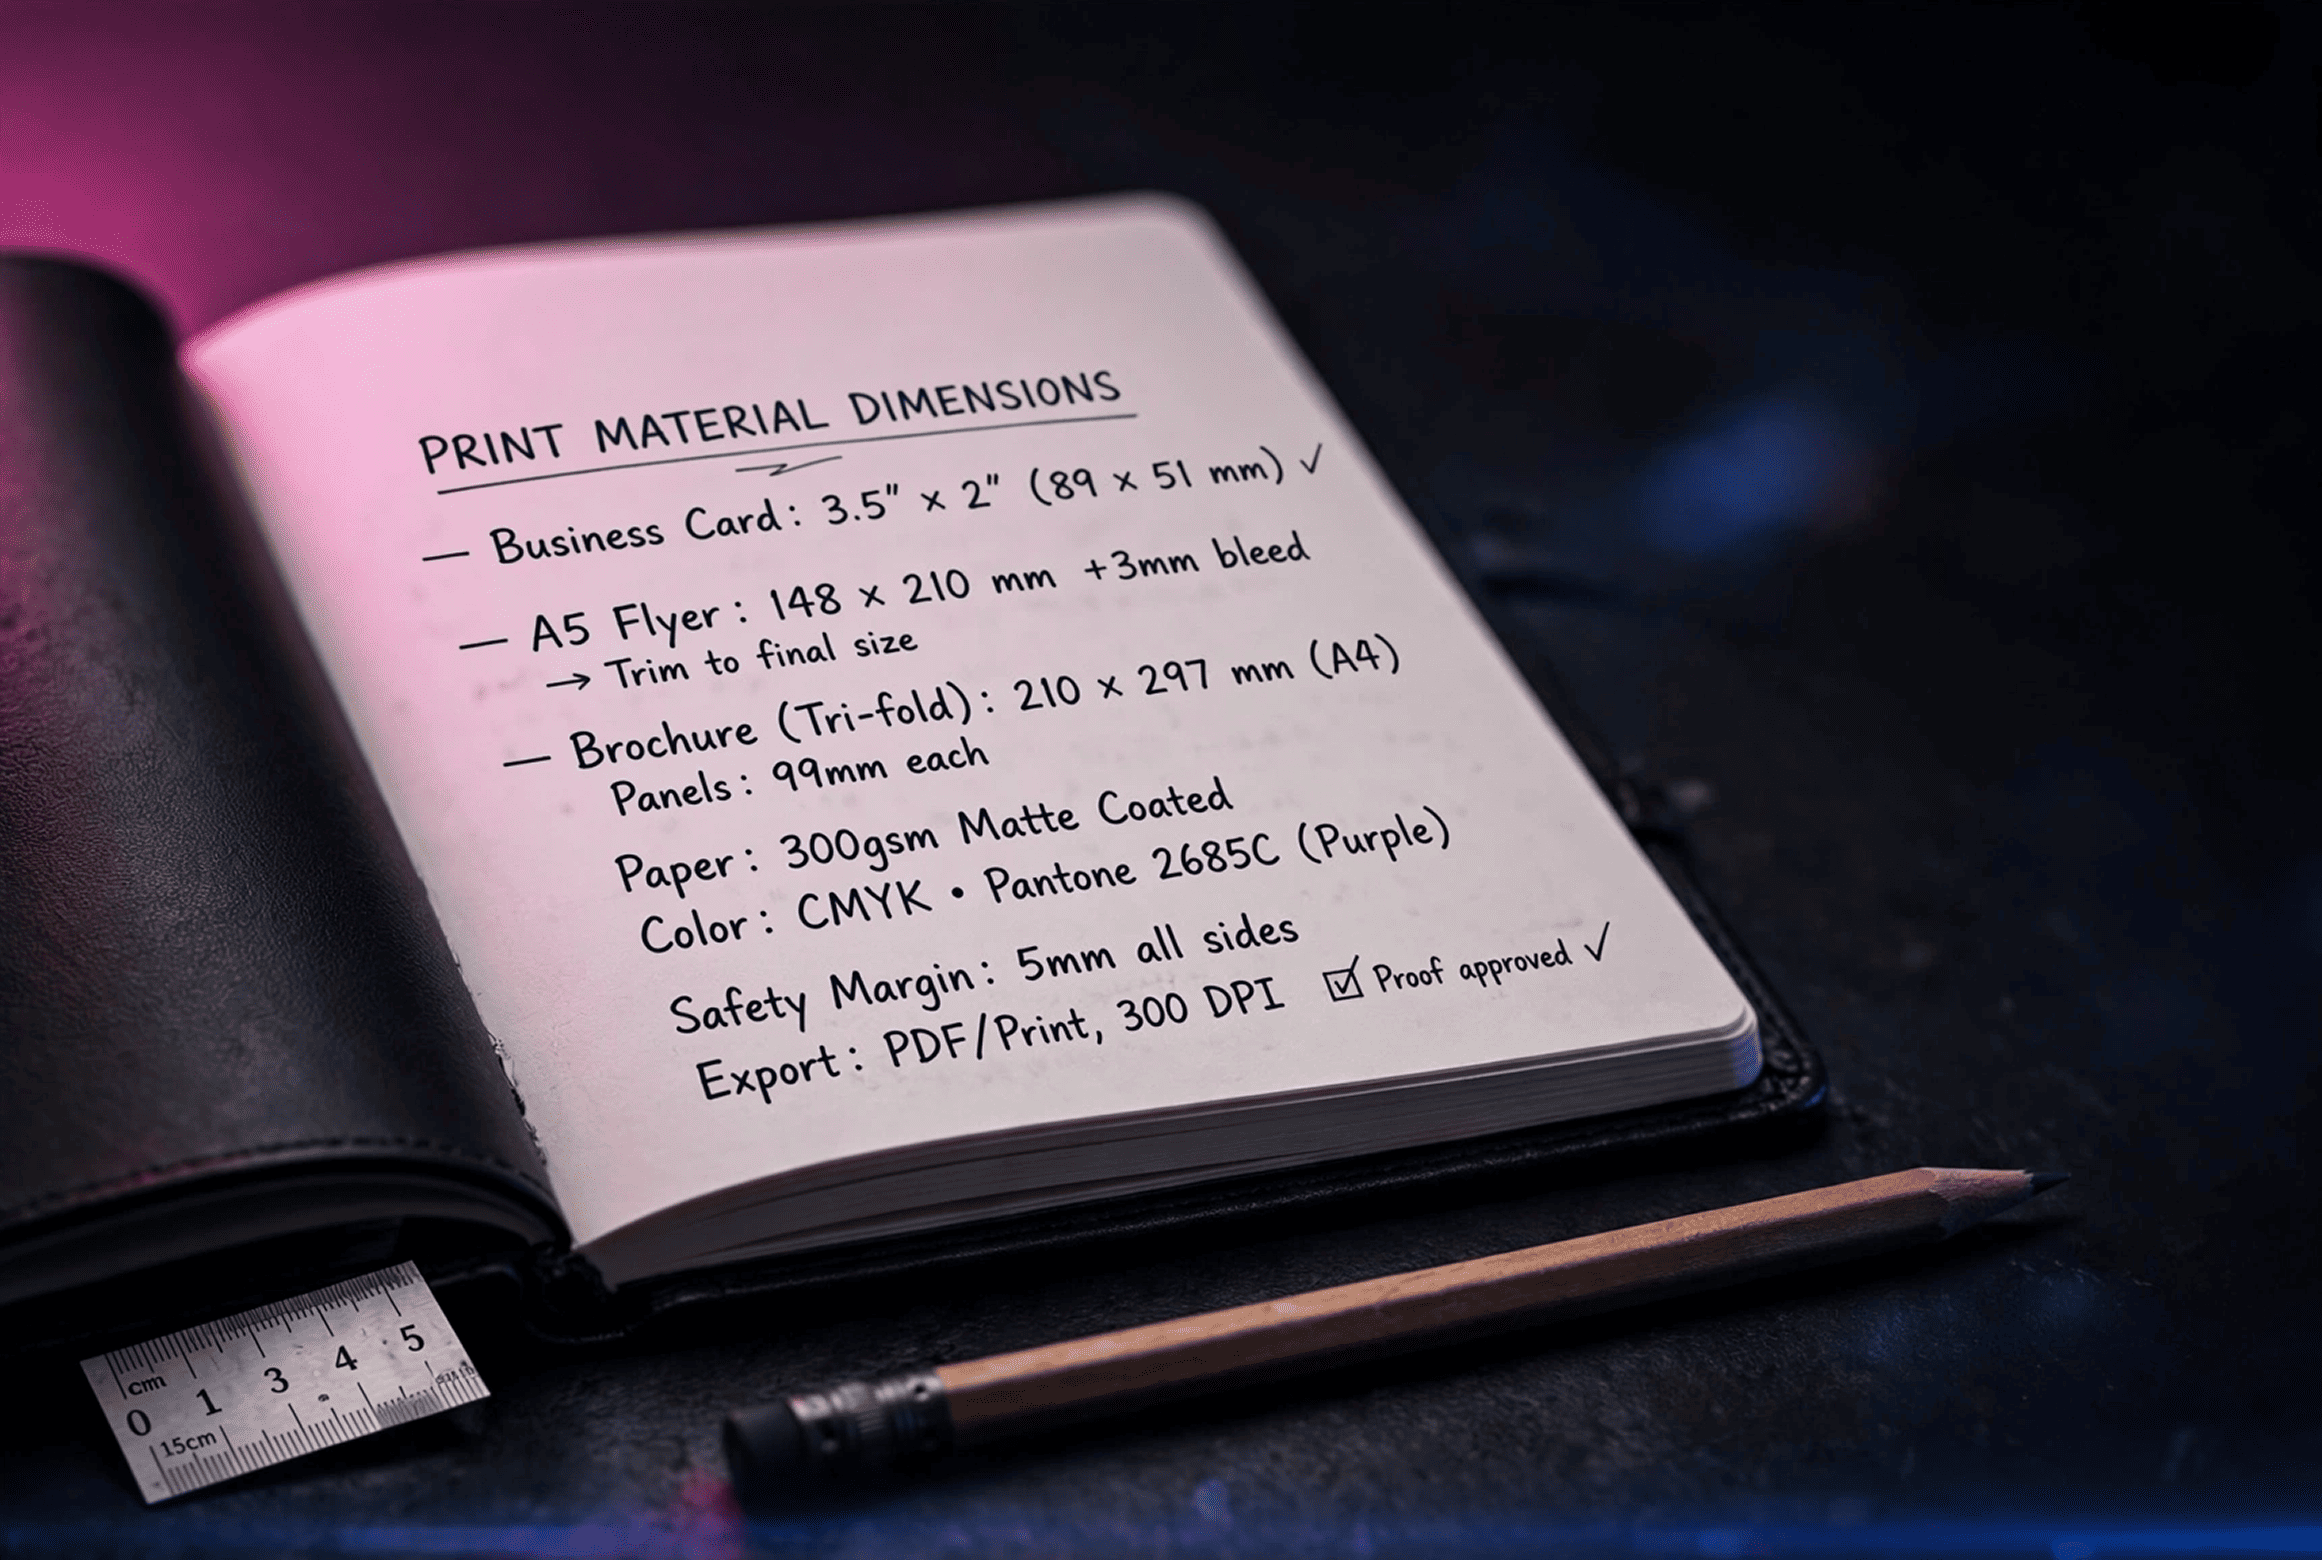 PRINT MATERIAL DIMENSIONS
— Business Card: 3.5" x 2" (89 x 51 mm) ✓
— A5 Flyer: 148 x 210 mm +3mm bleed
→ Trim to final size
— Brochure (Tri-fold): 210 x 297 mm (A4)
Panels: 99mm each
Paper: 300gsm Matte Coated
Color: CMYK • Pantone 2685C (Purple)
Safety Margin: 5mm all sides
Export: PDF/Print, 300 DPI ☑ Proof approved ✓
cm
0 1 3 4 5
15cm